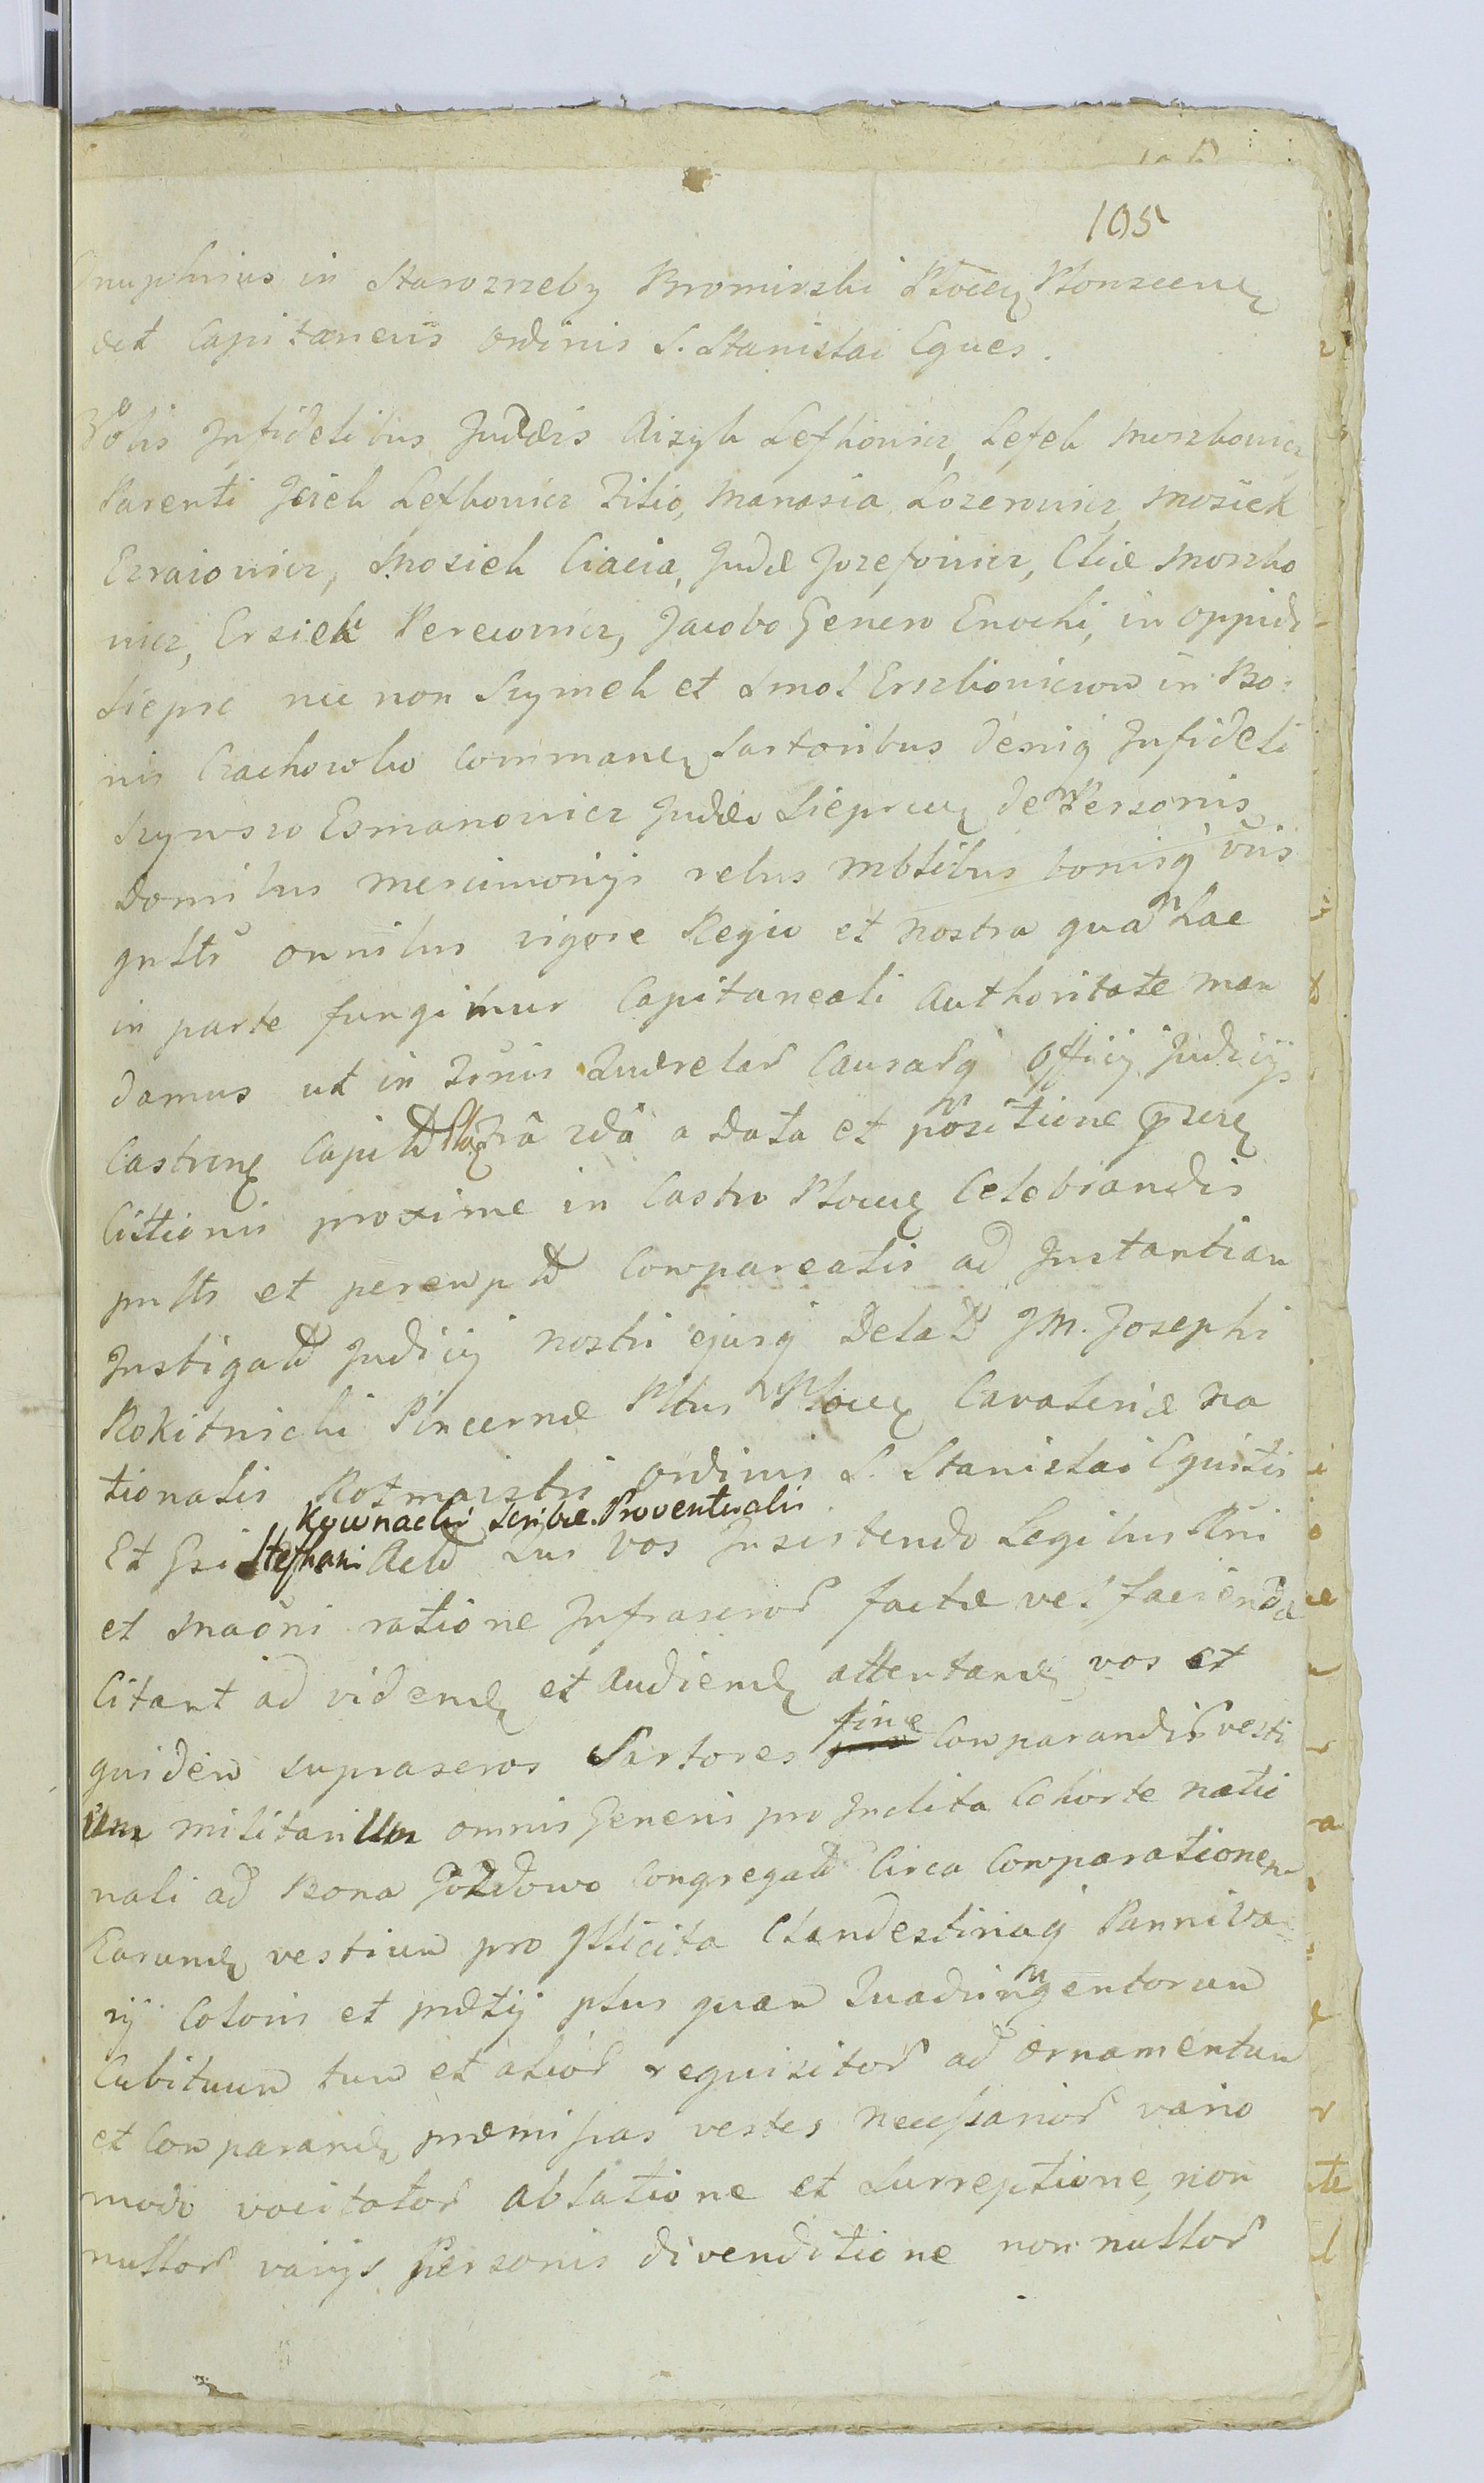 105
Onuphrius in Starozrzeby Bromirski Płocen Płonscens
et Capitaneus Ordinis S. Stanislai Eques.
Vobis Infidelibus Judæis Aizyk Lefkowicz, Lefek Moszkowicz
Parenti Jcick Lefkowicz Filio, Manasia Lozerowicz, Mosiek
Ezraiowicz, Mosiek Ciacia, Judæ Jozefowicz, Eliæ Moszko
wicz, Ersiek Perecowicz, Jacobo Genero Enochi, in oppido
Sieprc nec non Szymek et Smol Erszkowiczow in Bo:
nis Czachowko Commanen Sartoribus deniq Infideli
Esmanowicz Judæo Sieprcen de Personis
Domibus mercimonijs rebus mblibus bonisq vris
gnltr omnibus vigore Regio et Nostra qua hac
in parte fungimur Capitaneali Authoritate man
damus ut in Trnis Querelar Causarq Officij Judicijs
Castren Capit a Data et positione præsen
Cittionis proxime in Castro Płocen Celebrandis
pnltr et perempt Compareatis ad Instantiam
Instigat Judicij Nostri ejusq Delat JM. Josephi
Rokitnicki Pincernæ Pltus Płocen Cavaleriæ Na
tionalis Rotmaistri Ordinis S. Stanislai Equitis
Kownacki Scribæ Proventualis
Et Gsi Stephani Act Qui vos Insistendo Legibus Rni
et Maoni ratione Infrascror factæ vel faciendæ
Citant ad viden et Audien attentan vos et
quidem suprascros Sartores fine Comparandis vesti
um militarium omnis Generis pro Inclita Cohorte natio
nali ad Bona Gozdowo Congregat Circa Comparationem
Earund vestium pro Illicita Clandestinaq Panni va
rij Coloris et prætij plus quam Quadringentorum
Cubituum tum et alior requisitor ad ornamentum
et Comparand præmissas vestes Necessarior vario
modo vocitator Ablatione et Surreptione, non
nullor varijs Personis divenditione non nullor